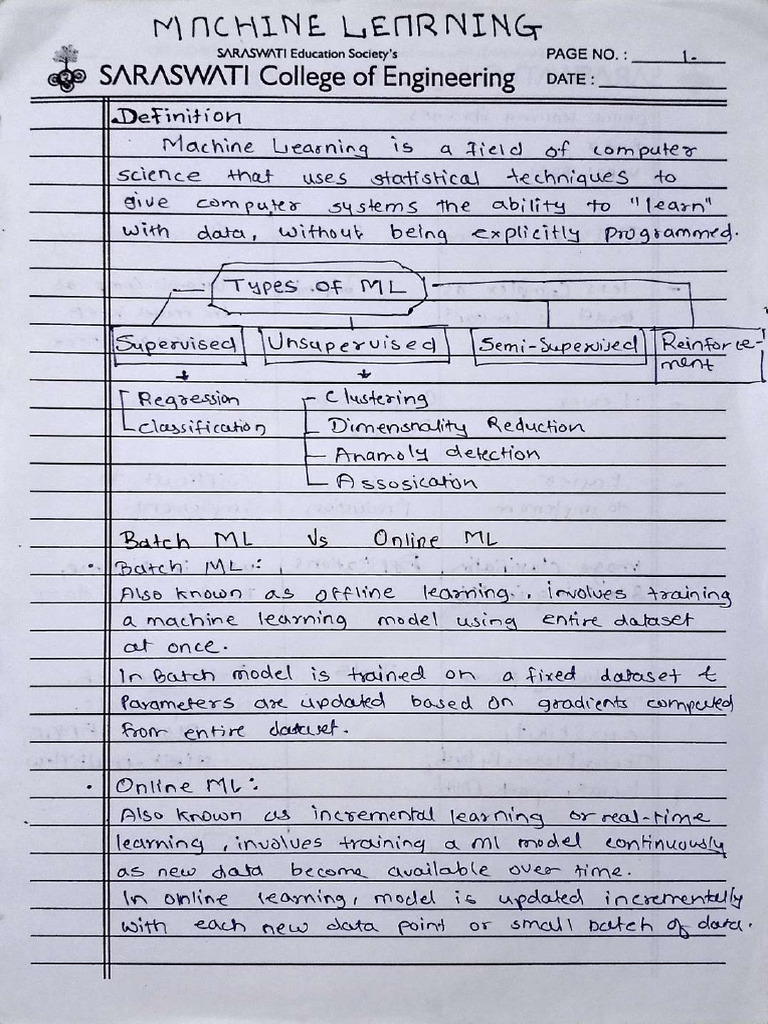 MACHINE LEARNING
SARASWATI Education Society's
SARASWATI College of Engineering
PAGE NO. : 1-
DATE :
Definition
Machine Learning is a field of computer
science that uses statistical techniques to
give computer systems the ability to "learn"
with data, without being explicitly programmed.
Types of ML
Supervised Unsupervised Semi-Supervised Reinforce-
ment
Regression
Classification
Clustering
Dimensnality Reduction
Anamoly detection
Assosication
Batch ML Vs Online ML
• Batch ML :
Also known as offline learning, involves training
a machine learning model using entire dataset
at once.
In Batch model is trained on a fixed dataset &
Parameters are updated based on gradients computed
from entire dataset.
• Online ML :
Also known as incremental learning or real-time
learning, involves training a ml model continuously
as new data become available over time.
In online learning, model is updated incrementally
with each new data point or small batch of data.